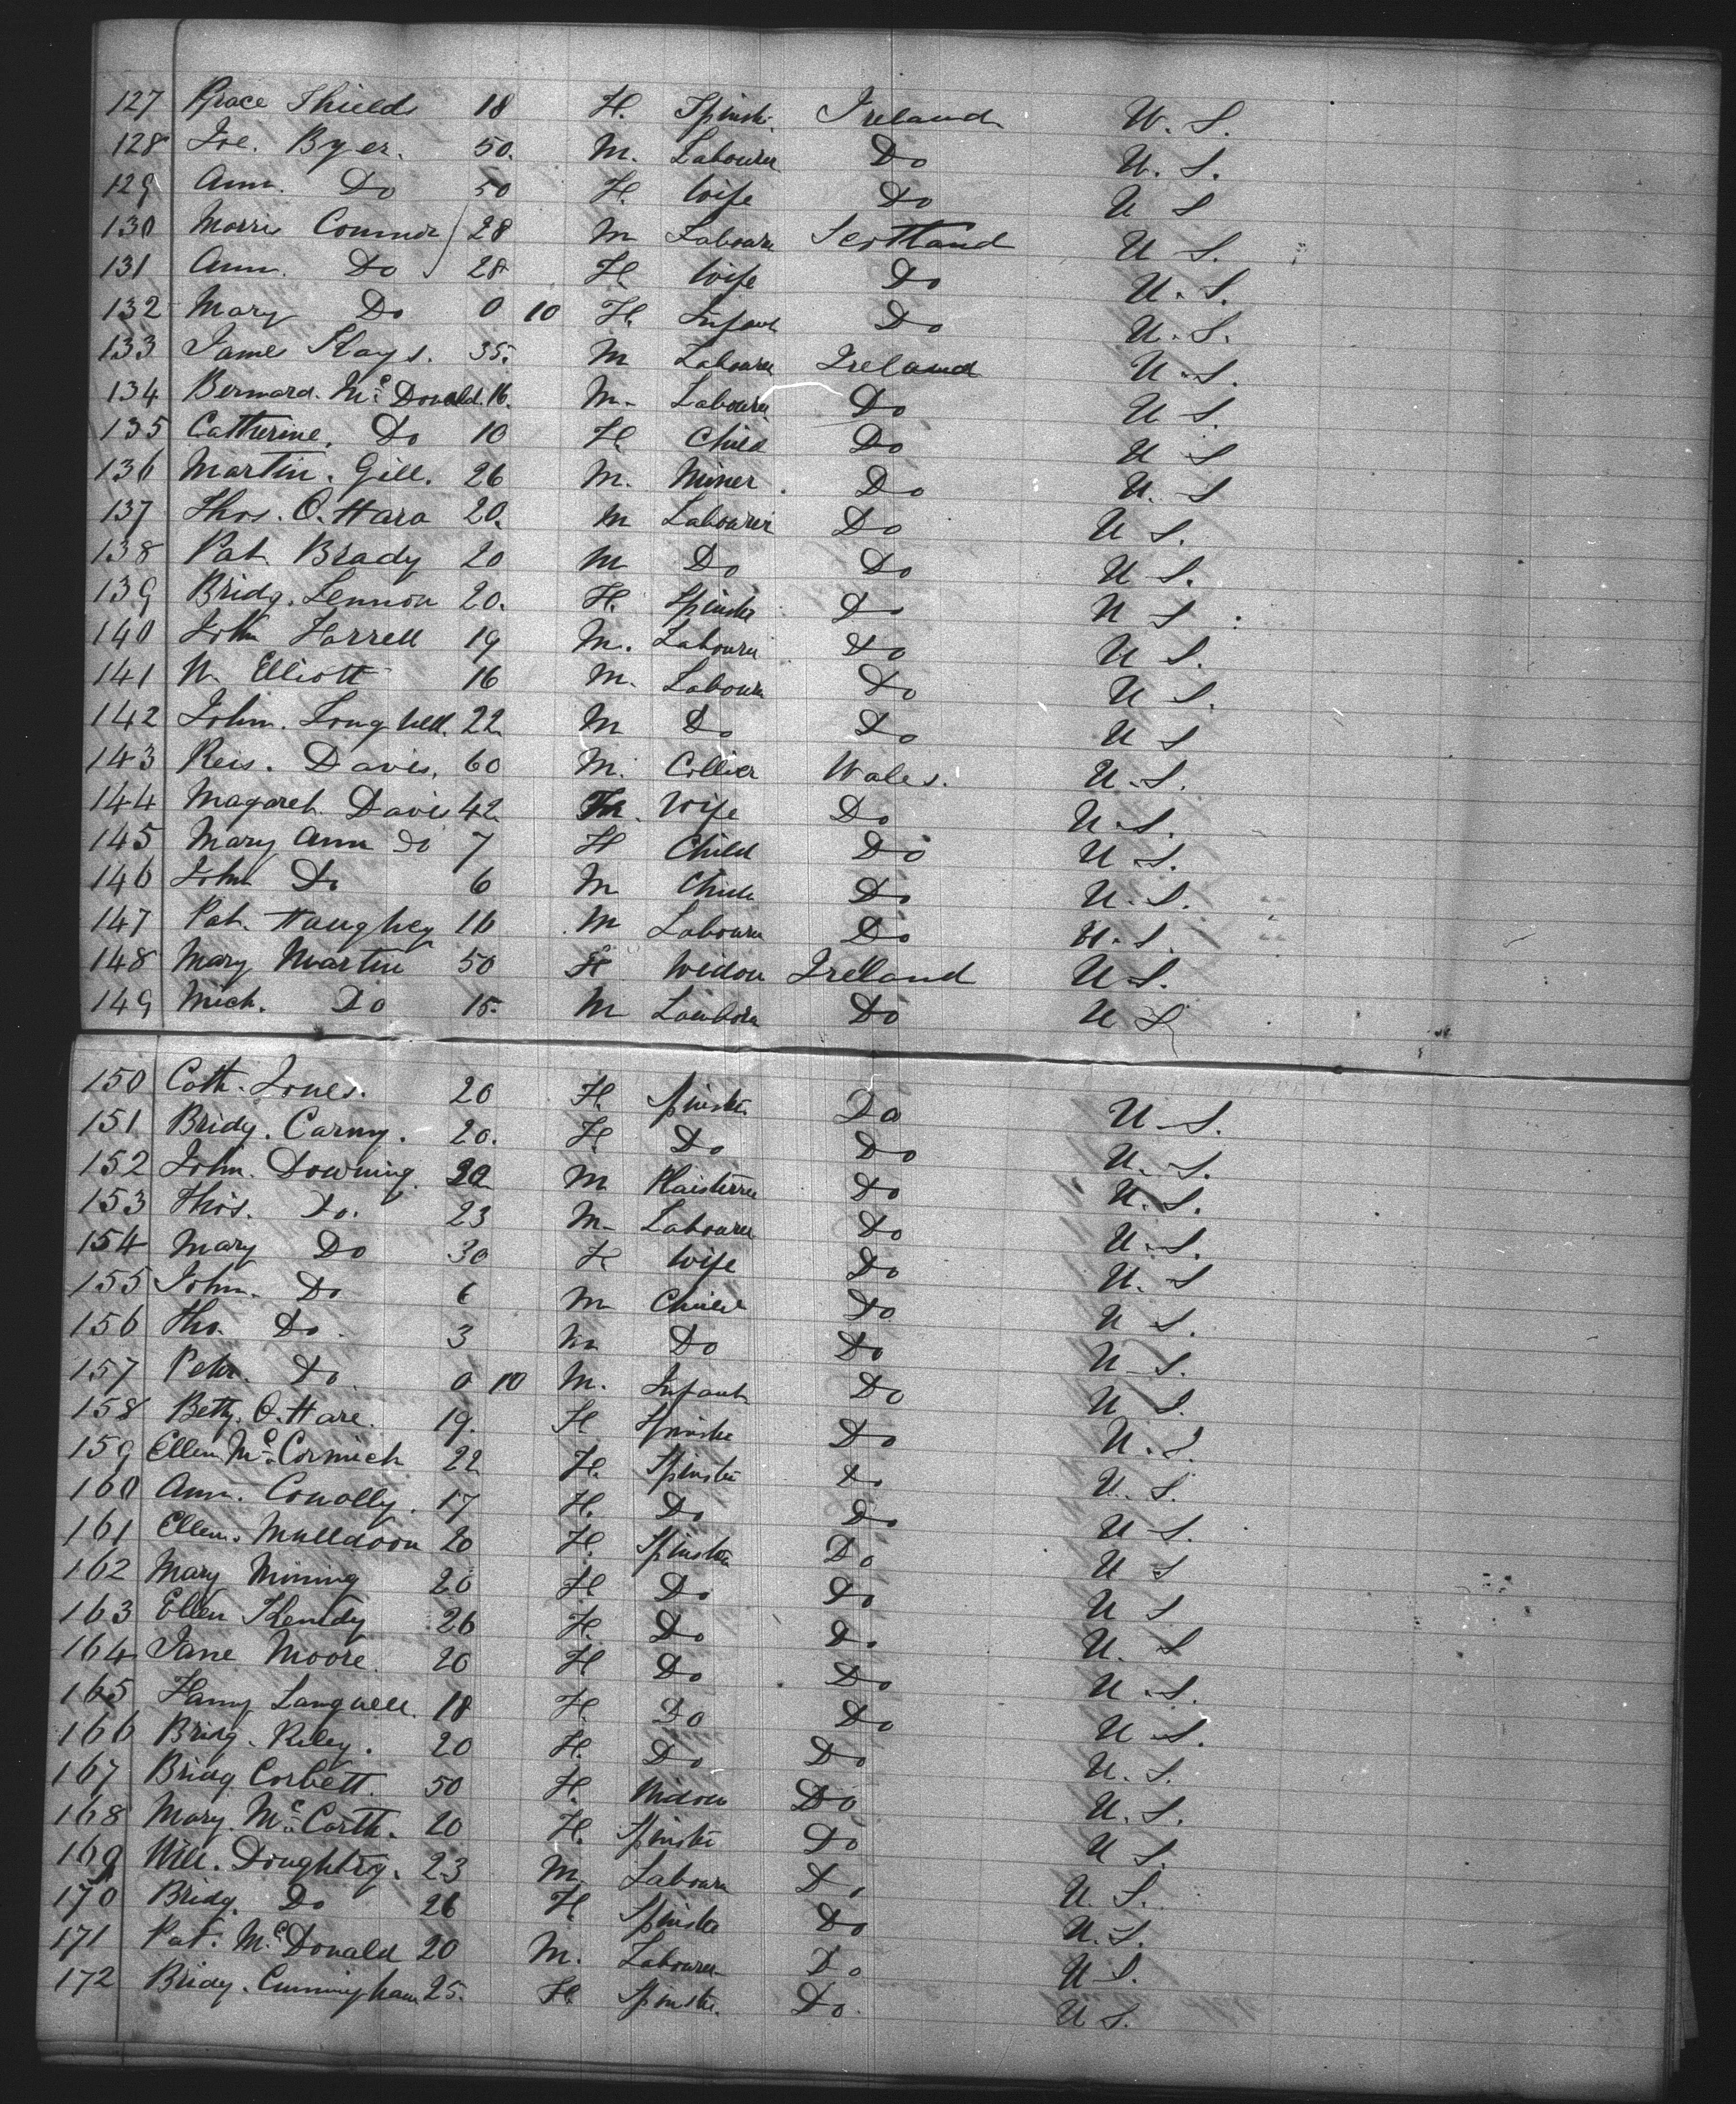 127 Grace Shields 18 F. Spinstr. Ireland U. S.
128 Joe. Byer. 50. M. Labourer Do U. S.
129 Ann. Do 50 F. Wife Do U S
130 Morris Connor 28 M Labourer Scotland U S.
131 Ann. Do 28 F. Wife Do U. S.
132 Mary Do 0 10 F. Infant Do U. S.
133 James Kays. 35. M Labourer Ireland U. S.
134 Bernard. Mc Donald. 16. M. Labourer Do U S.
135 Catherine. Do 10 F. Child Do U S
136 Martin. Gill. 26 M. Miner. Do U. S
137 Thos. O. Hara 20. M Labourer Do U S.
138 Pat. Brady 20 M Do Do U S.
139 Bridg. Lennon 20. F. Spinster Do U S.
140 John Farrell 19 M. Labourer Do U S.
141 W. Elliott 16 M. Labourer Do U S.
142 John. Longwell. 22 M Do Do U S
143 Reis. Davis. 60 M. Collier Wales. U. S.
144 Magaret. Davis 42 F. Wife Do U. S.
145 Mary Ann do 7 F Child Do U S.
146 John Do 6 M Child Do U. S.
147 Pat. Haughey 16 M Labourer Do U. S.
148 Mary Martin 50 F Widow Ireland U S.
149 Mich. Do 15. M Laubora Do U S
150 Cath. Jones. 20 F. Spinster Do U S.
151 Bridg. Carny. 20. F. Do Do U. S.
152 John. Downing. M Plaisterer Do U. S.
153 Thos. Do. 23 M. Labourer Do U. S.
154 Mary Do 30 F Wife Do U. S
155 John. Do 6 M Child Do U S.
156 Tho. Do. 3 M Do Do U S.
157 Peter. Do. 0 10 M. Infant Do U S.
158 Betty. O. Hare. 19. F. Spinster Do U. S
159 Ellen Mc Cormick 22 F. Spinster Do U. S.
160 Ann. Conolly. 17 F. Do Do U S.
161 Ellen. Mulldoon 20 F. Spinster Do U S
162 Mary Mining 20 F. Do Do U S
163 Ellen Kendy 26 F. Do Do U. S
164 Jane Moore. 20 F. Do Do U S.
165 Fanny Langwell. 18 F. Do Do U S.
166 Bridg. Riley. 20 F. Do Do U. S.
167 Bridg Corbett. 50 F. Widow Do U. S.
168 Mary. Mc Carth. 20 F. Spinster Do U S.
169 Will. Doughtry. 23 M. Labourer Do U. S.
170 Bridg. Do 26 F. Spinster Do U. S.
171 Pat. Mc Donald 20 M. Labourer Do U S.
172 Bridg. Cunningham 25. F. Spinster. Do. U S.